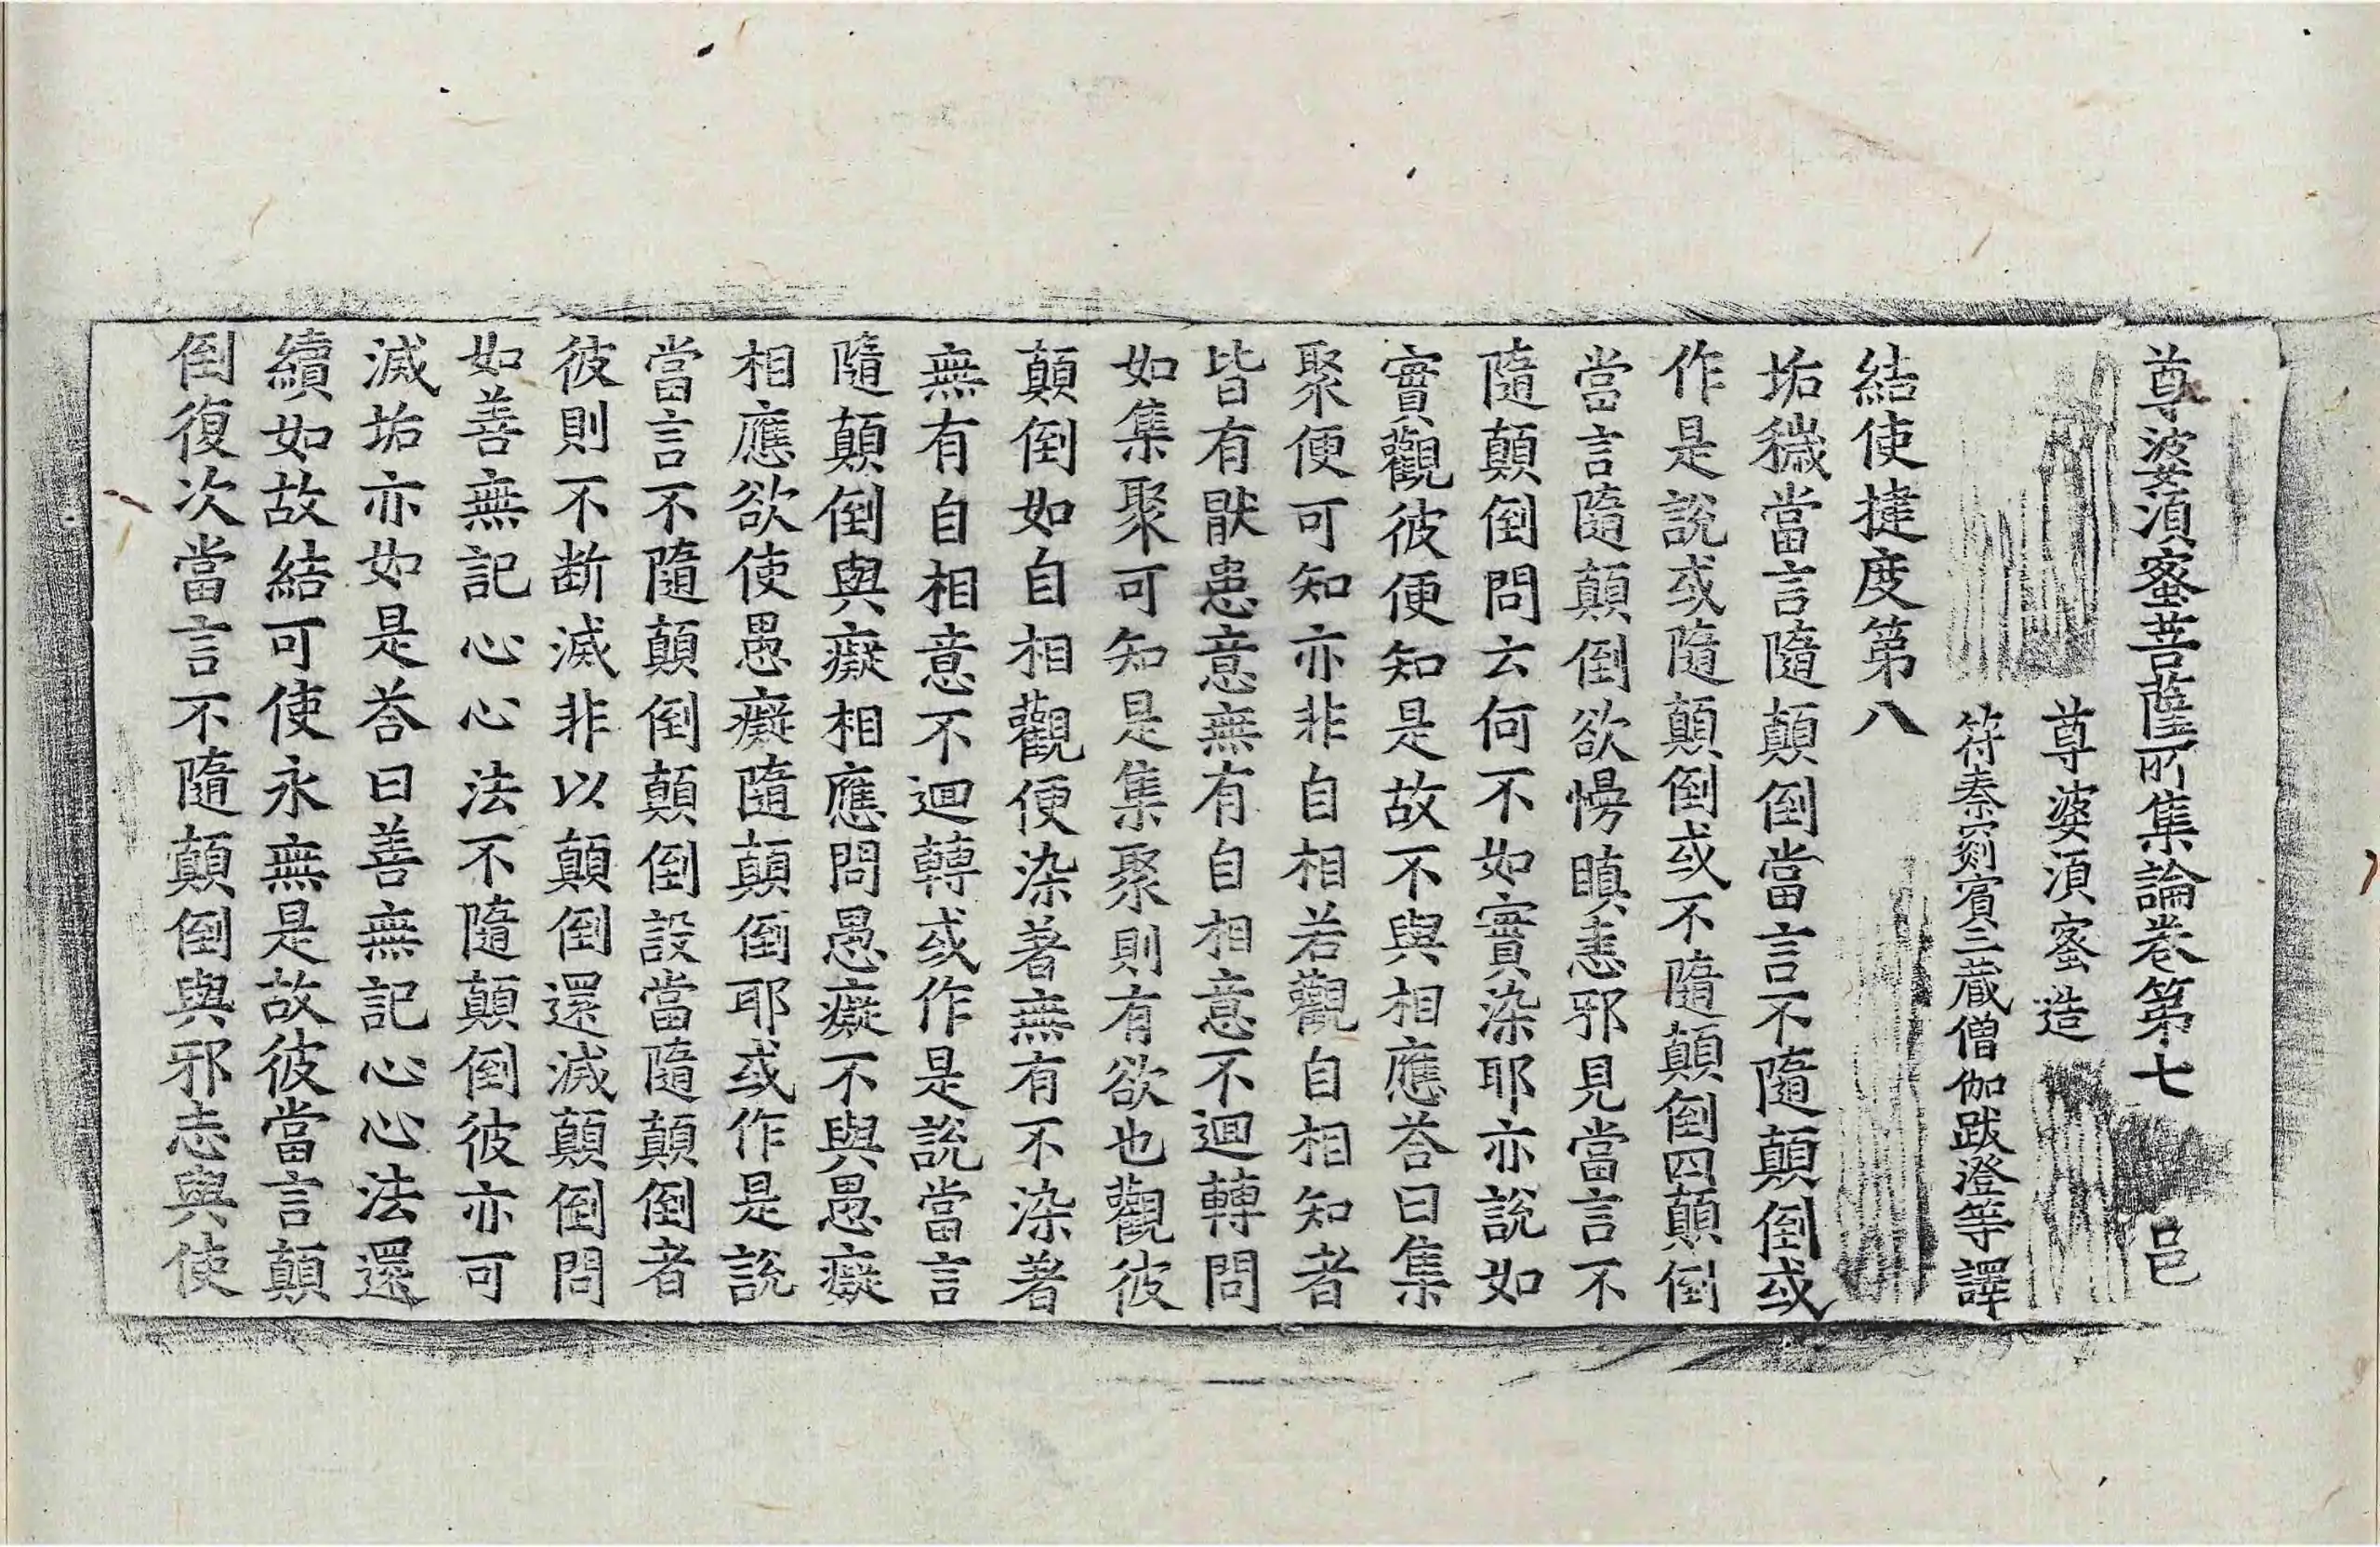 尊婆湏蜜菩薩所集論卷第七 邑
尊婆湏蜜造
符秦罽賓三藏僧伽跋澄等譯
結使揵度第八
垢穢當言隨顛倒當言不隨顛倒或
作是說或隨顛倒或不隨顛倒四顛倒
當言隨顛倒欲慢瞋恚邪見當言不
隨顛倒問云何不如實染耶亦說如
實觀彼便知是故不與相應荅曰集
聚便可知亦非自相若觀自相知者
皆有猒患意無有自相意不迴轉問
如集聚可知是集聚則有欲也觀彼
顛倒如自相觀便染著無有不染著
無有自相意不迴轉或作是說當言
隨顛倒與癡相應問愚癡不與愚癡
相應欲使愚癡隨顛倒耶或作是說
當言不隨顛倒顛倒設當隨顛倒者
彼則不断滅非以顛倒還滅顛倒問
如善無記心心法不隨顛倒彼亦可
滅垢亦如是荅曰善無記心心法還
續如故結可使永無是故彼當言顛
倒復次當言不隨顛倒與邪志與使